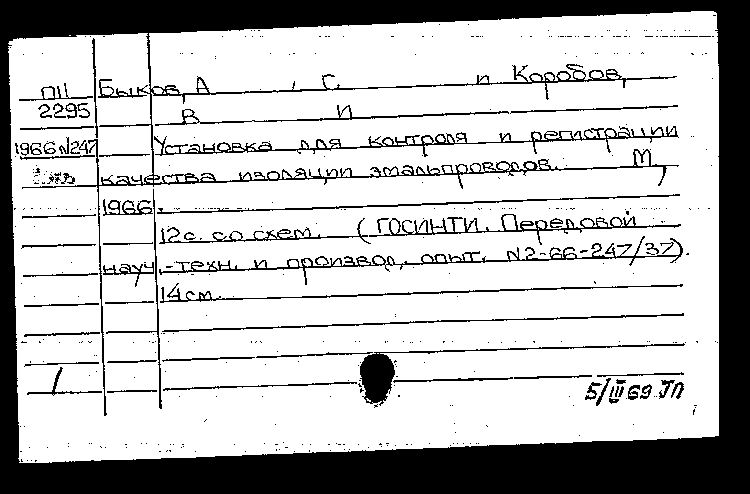 П11 Быков, А , С. и Коробов,
2295 В И
1966 №247 Установка для контроля и регистрации
качества изоляции эмальпроводов. М,
1966.
12с. со схем. (ГОСИНТИ. Передовой
науч.-техн. и производ. опыт. №2-66-247/37).
14см.
/
5/III 69 ЛП